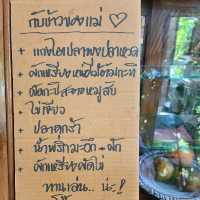 กับข้าวของแม่ ♡
+ แกงไตปลาผงปลาหวด
+ ผักเหรียงหน่อไม้ลวกกะทิ
+ ผัดกะปิสะตอหมูสับ
+ ไข่เจียว
+ ปลาดุกร้า
+ น้ำพริกมะอึก + ผัก
+ ผักเหรียงผัดไข่
ทานเล่น.. น่ะ!